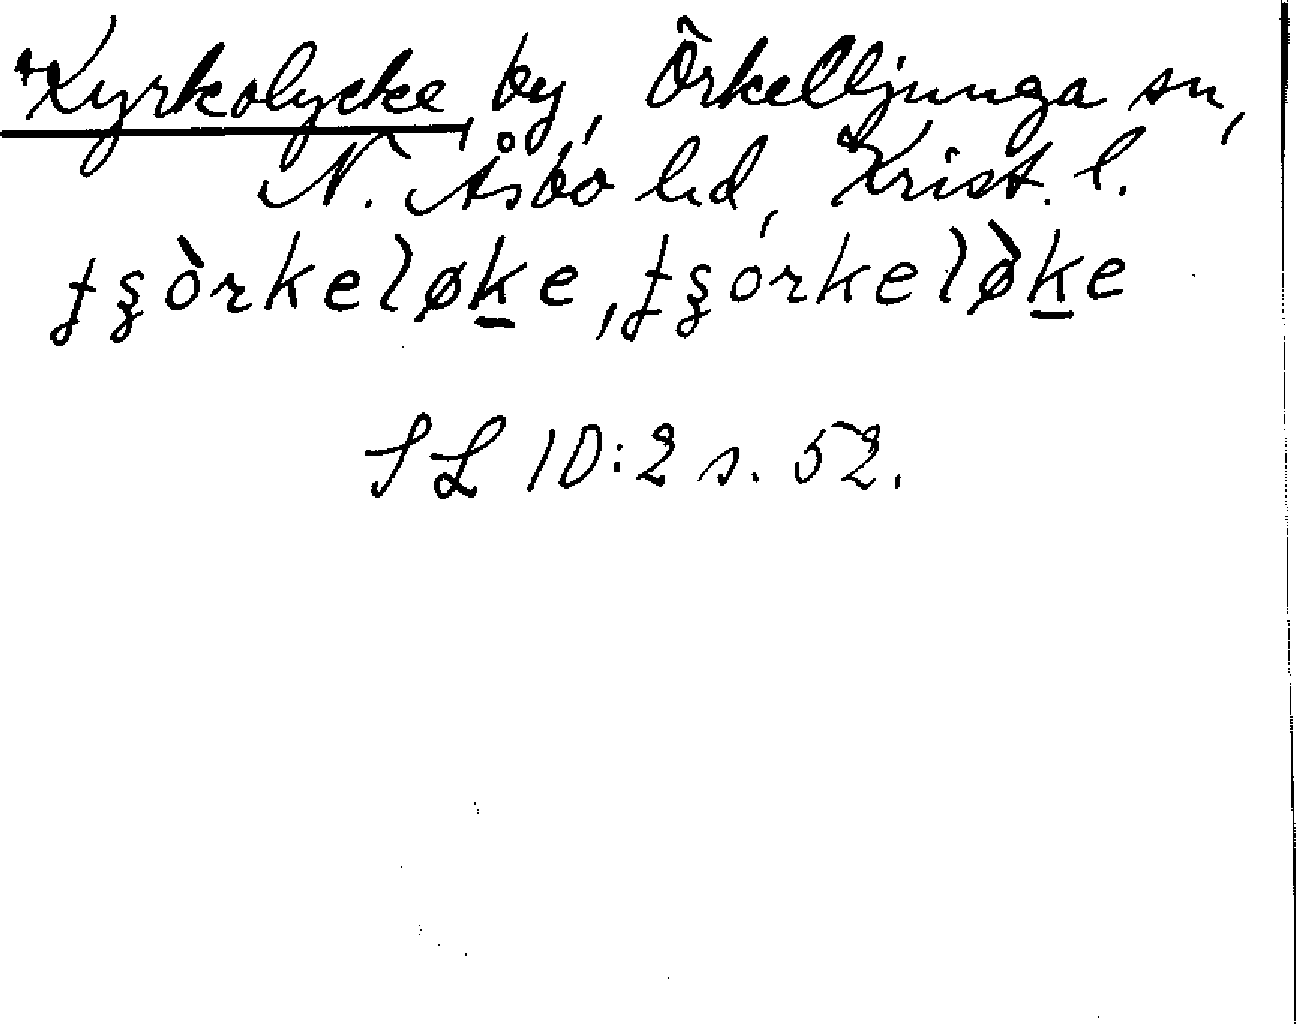 Kyrkolycke, by, Örkelljunga sn,
N. Åsbo hd, Krist. l.
ʈʂòrkeløk̲e, ʈʂorkelø̀k̲e
SL 10:2 s. 52.